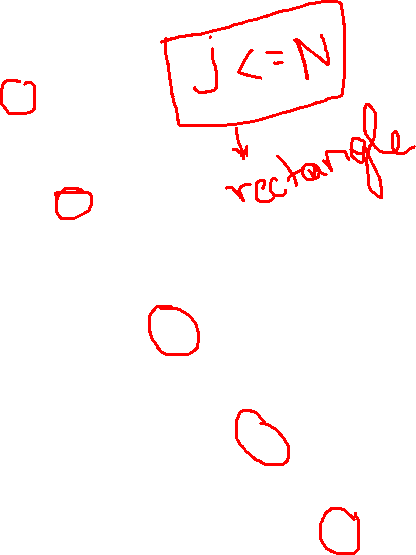 j <= N
rectangle